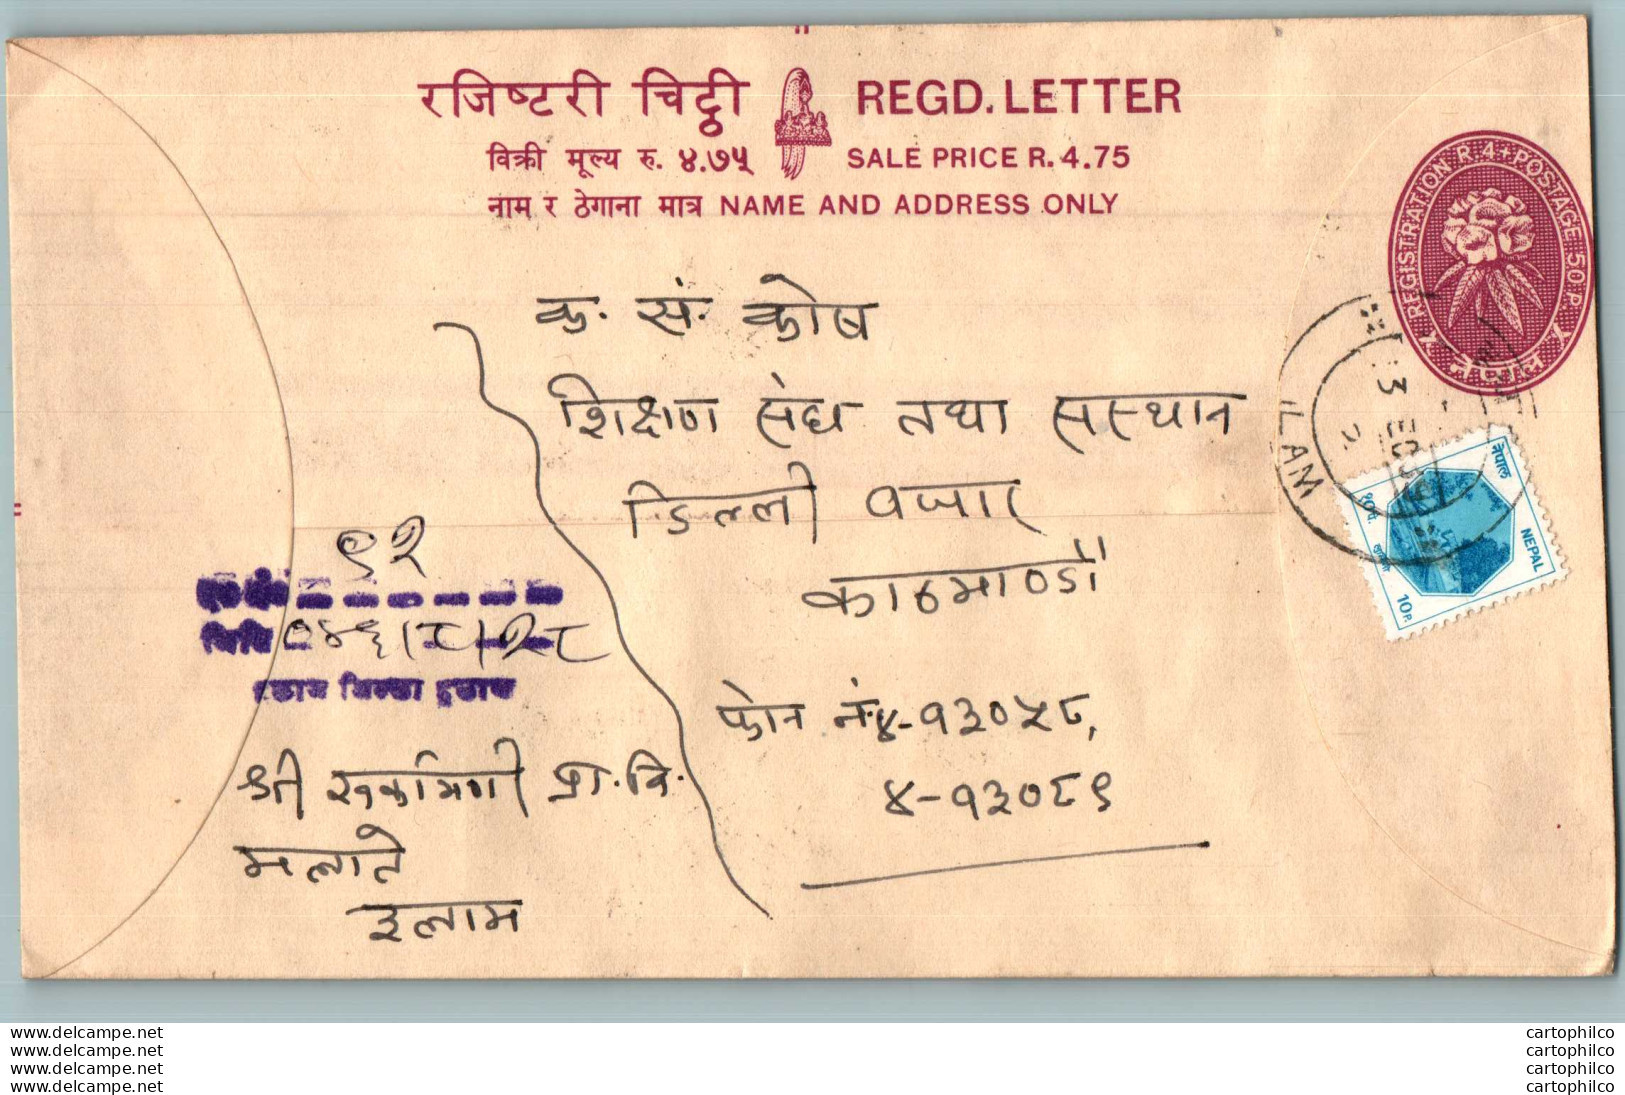 रजिष्टरी चिट्ठी REGD. LETTER
विक्री मूल्य रु. ४.७५ SALE PRICE R. 4.75
नाम र ठेगाना मात्र NAME AND ADDRESS ONLY
REGISTRATION. R. 4 + POSTAGE. 50 P.
नेपाल
ILAM
नेपाल
१० पै.
NEPAL
10 P.
क. सं. कोष
शिक्षण संघ तथा सस्थान
डिल्ली वजार
काठमाण्डौं
फोन नं. ४-१३०५८,
४-१३०८९
९२
मिति ०४६/८/२८
श्री प्रा. वि.
मलाते
इलाम
www.delcampe.net
www.delcampe.net
www.delcampe.net
www.delcampe.net
cartophilco
cartophilco
cartophilco
cartophilco